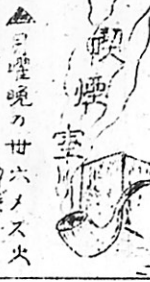 喫煙室
▲日曜晩ノ卅六メス火